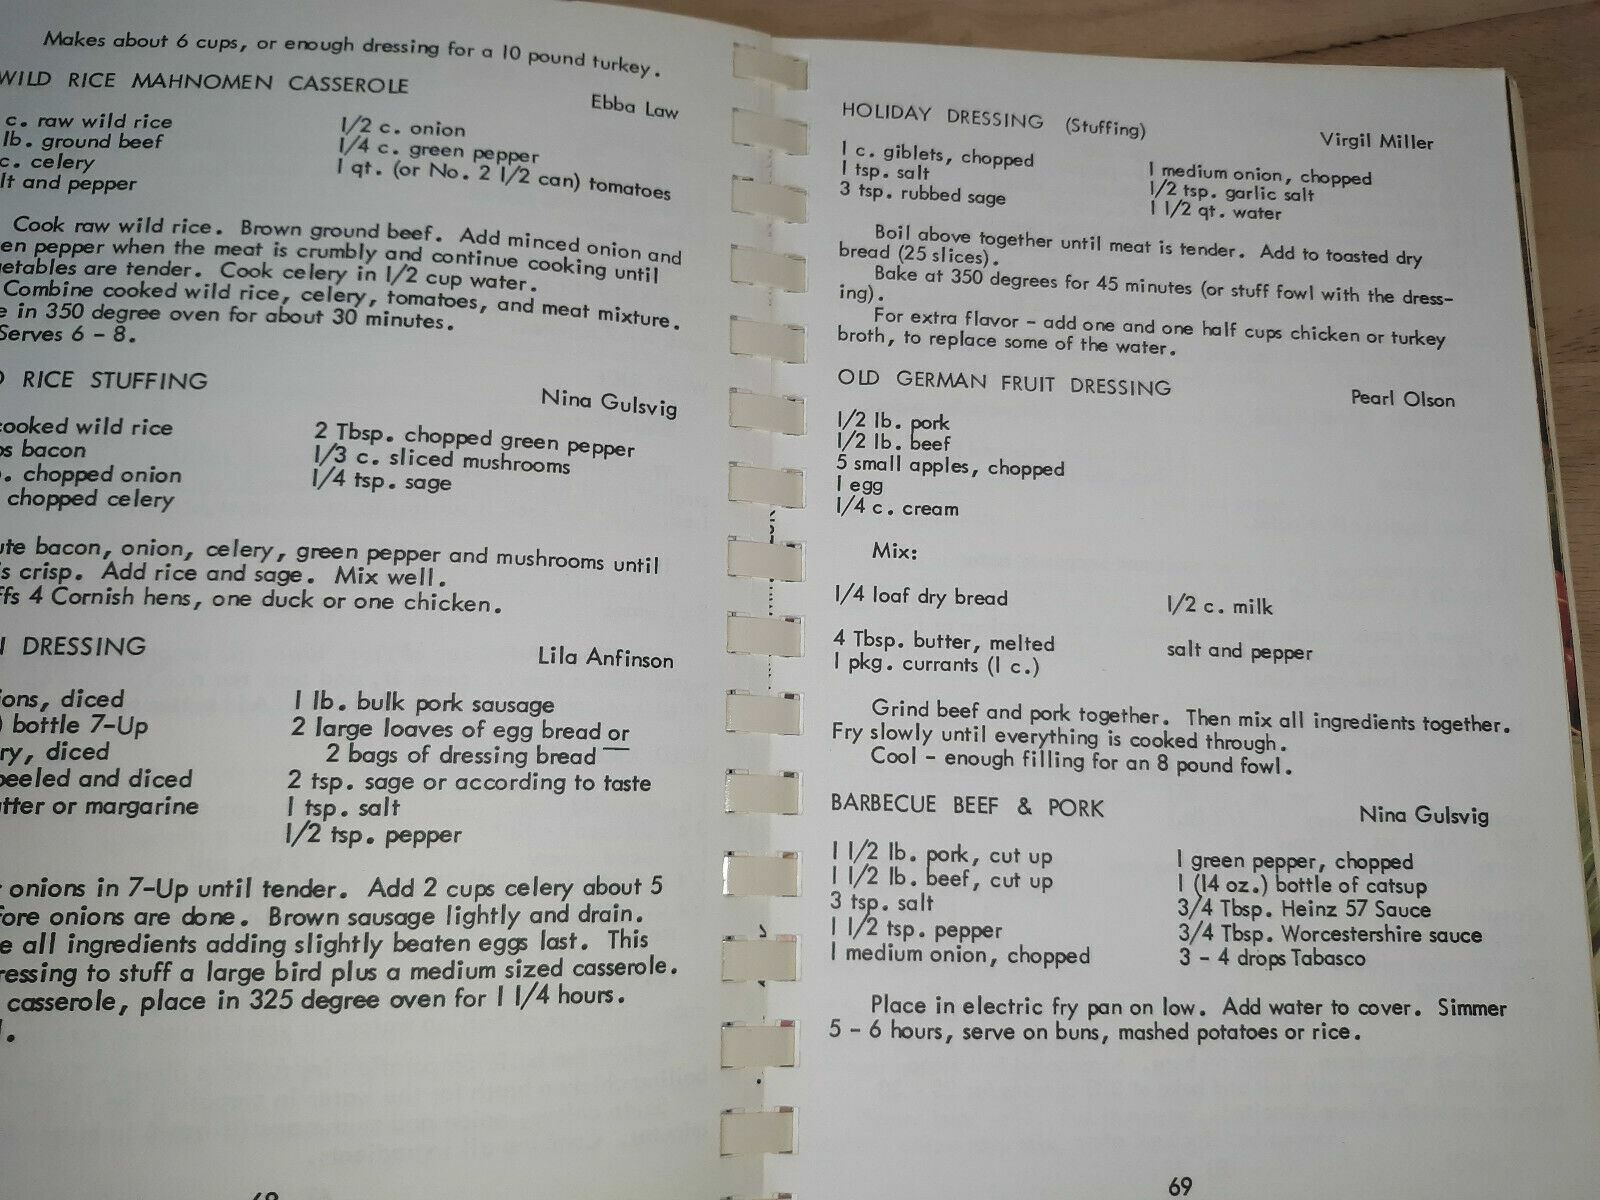 Makes about 6 cups, or enough dressing for a 10 pound turkey.
WILD RICE MAHNOMEN CASSEROLE
Ebba Law
c. raw wild rice
lb. ground beef
c. celery
lt and pepper
1/2 c. onion
1/4 c. green pepper
1 qt. (or No. 2 1/2 can) tomatoes
Cook raw wild rice. Brown ground beef. Add minced onion and
en pepper when the meat is crumbly and continue cooking until
getables are tender. Cook celery in 1/2 cup water.
Combine cooked wild rice, celery, tomatoes, and meat mixture.
e in 350 degree oven for about 30 minutes.
Serves 6 - 8.
D RICE STUFFING
Nina Gulsvig
cooked wild rice
ps bacon
. chopped onion
chopped celery
2 Tbsp. chopped green pepper
1/3 c. sliced mushrooms
1/4 tsp. sage
ute bacon, onion, celery, green pepper and mushrooms until
is crisp. Add rice and sage. Mix well.
ffs 4 Cornish hens, one duck or one chicken.
DRESSING
Lila Anfinson
ions, diced
) bottle 7-Up
ry, diced
peeled and diced
utter or margarine
1 lb. bulk pork sausage
2 large loaves of egg bread or
2 bags of dressing bread
2 tsp. sage or according to taste
1 tsp. salt
1/2 tsp. pepper
onions in 7-Up until tender. Add 2 cups celery about 5
fore onions are done. Brown sausage lightly and drain.
e all ingredients adding slightly beaten eggs last. This
ressing to stuff a large bird plus a medium sized casserole.
casserole, place in 325 degree oven for 1 1/4 hours.
HOLIDAY DRESSING (Stuffing)
Virgil Miller
1 c. giblets, chopped
1 tsp. salt
3 tsp. rubbed sage
1 medium onion, chopped
1/2 tsp. garlic salt
1 1/2 qt. water
Boil above together until meat is tender. Add to toasted dry
bread (25 slices).
Bake at 350 degrees for 45 minutes (or stuff fowl with the dress-
ing).
For extra flavor - add one and one half cups chicken or turkey
broth, to replace some of the water.
OLD GERMAN FRUIT DRESSING
Pearl Olson
1/2 lb. pork
1/2 lb. beef
5 small apples, chopped
1 egg
1/4 c. cream
Mix:
1/4 loaf dry bread
1/2 c. milk
4 Tbsp. butter, melted
1 pkg. currants (1 c.)
salt and pepper
Grind beef and pork together. Then mix all ingredients together.
Fry slowly until everything is cooked through.
Cool - enough filling for an 8 pound fowl.
BARBECUE BEEF & PORK
Nina Gulsvig
1 1/2 lb. pork, cut up
1 1/2 lb. beef, cut up
3 tsp. salt
1 1/2 tsp. pepper
1 medium onion, chopped
1 green pepper, chopped
1 (14 oz.) bottle of catsup
3/4 Tbsp. Heinz 57 Sauce
3/4 Tbsp. Worcestershire sauce
3 - 4 drops Tabasco
Place in electric fry pan on low. Add water to cover. Simmer
5 - 6 hours, serve on buns, mashed potatoes or rice.
69